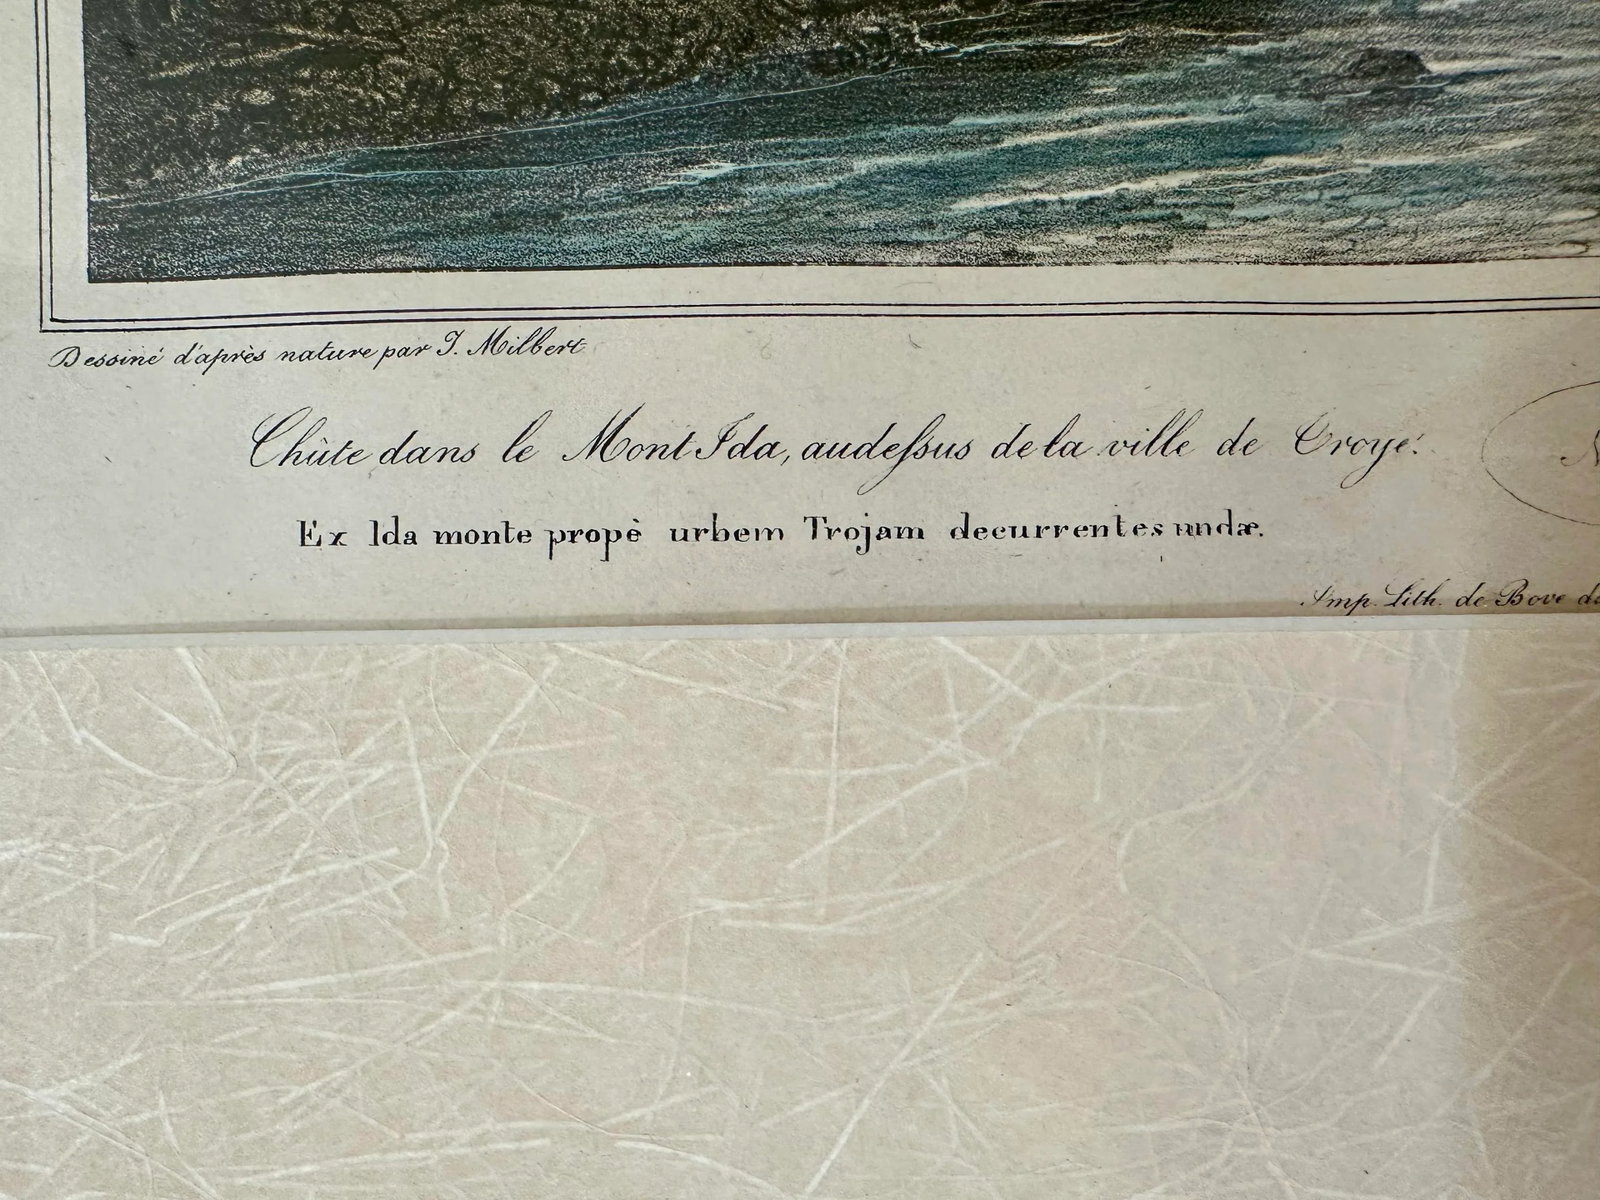 Dessiné d'après nature par J. Milbert
Chûte dans le Mont Ida, audeſsus de la ville de Troye.
Ex Ida monte propè urbem Trojam decurrentes undæ.
Imp. Lith. de Bove